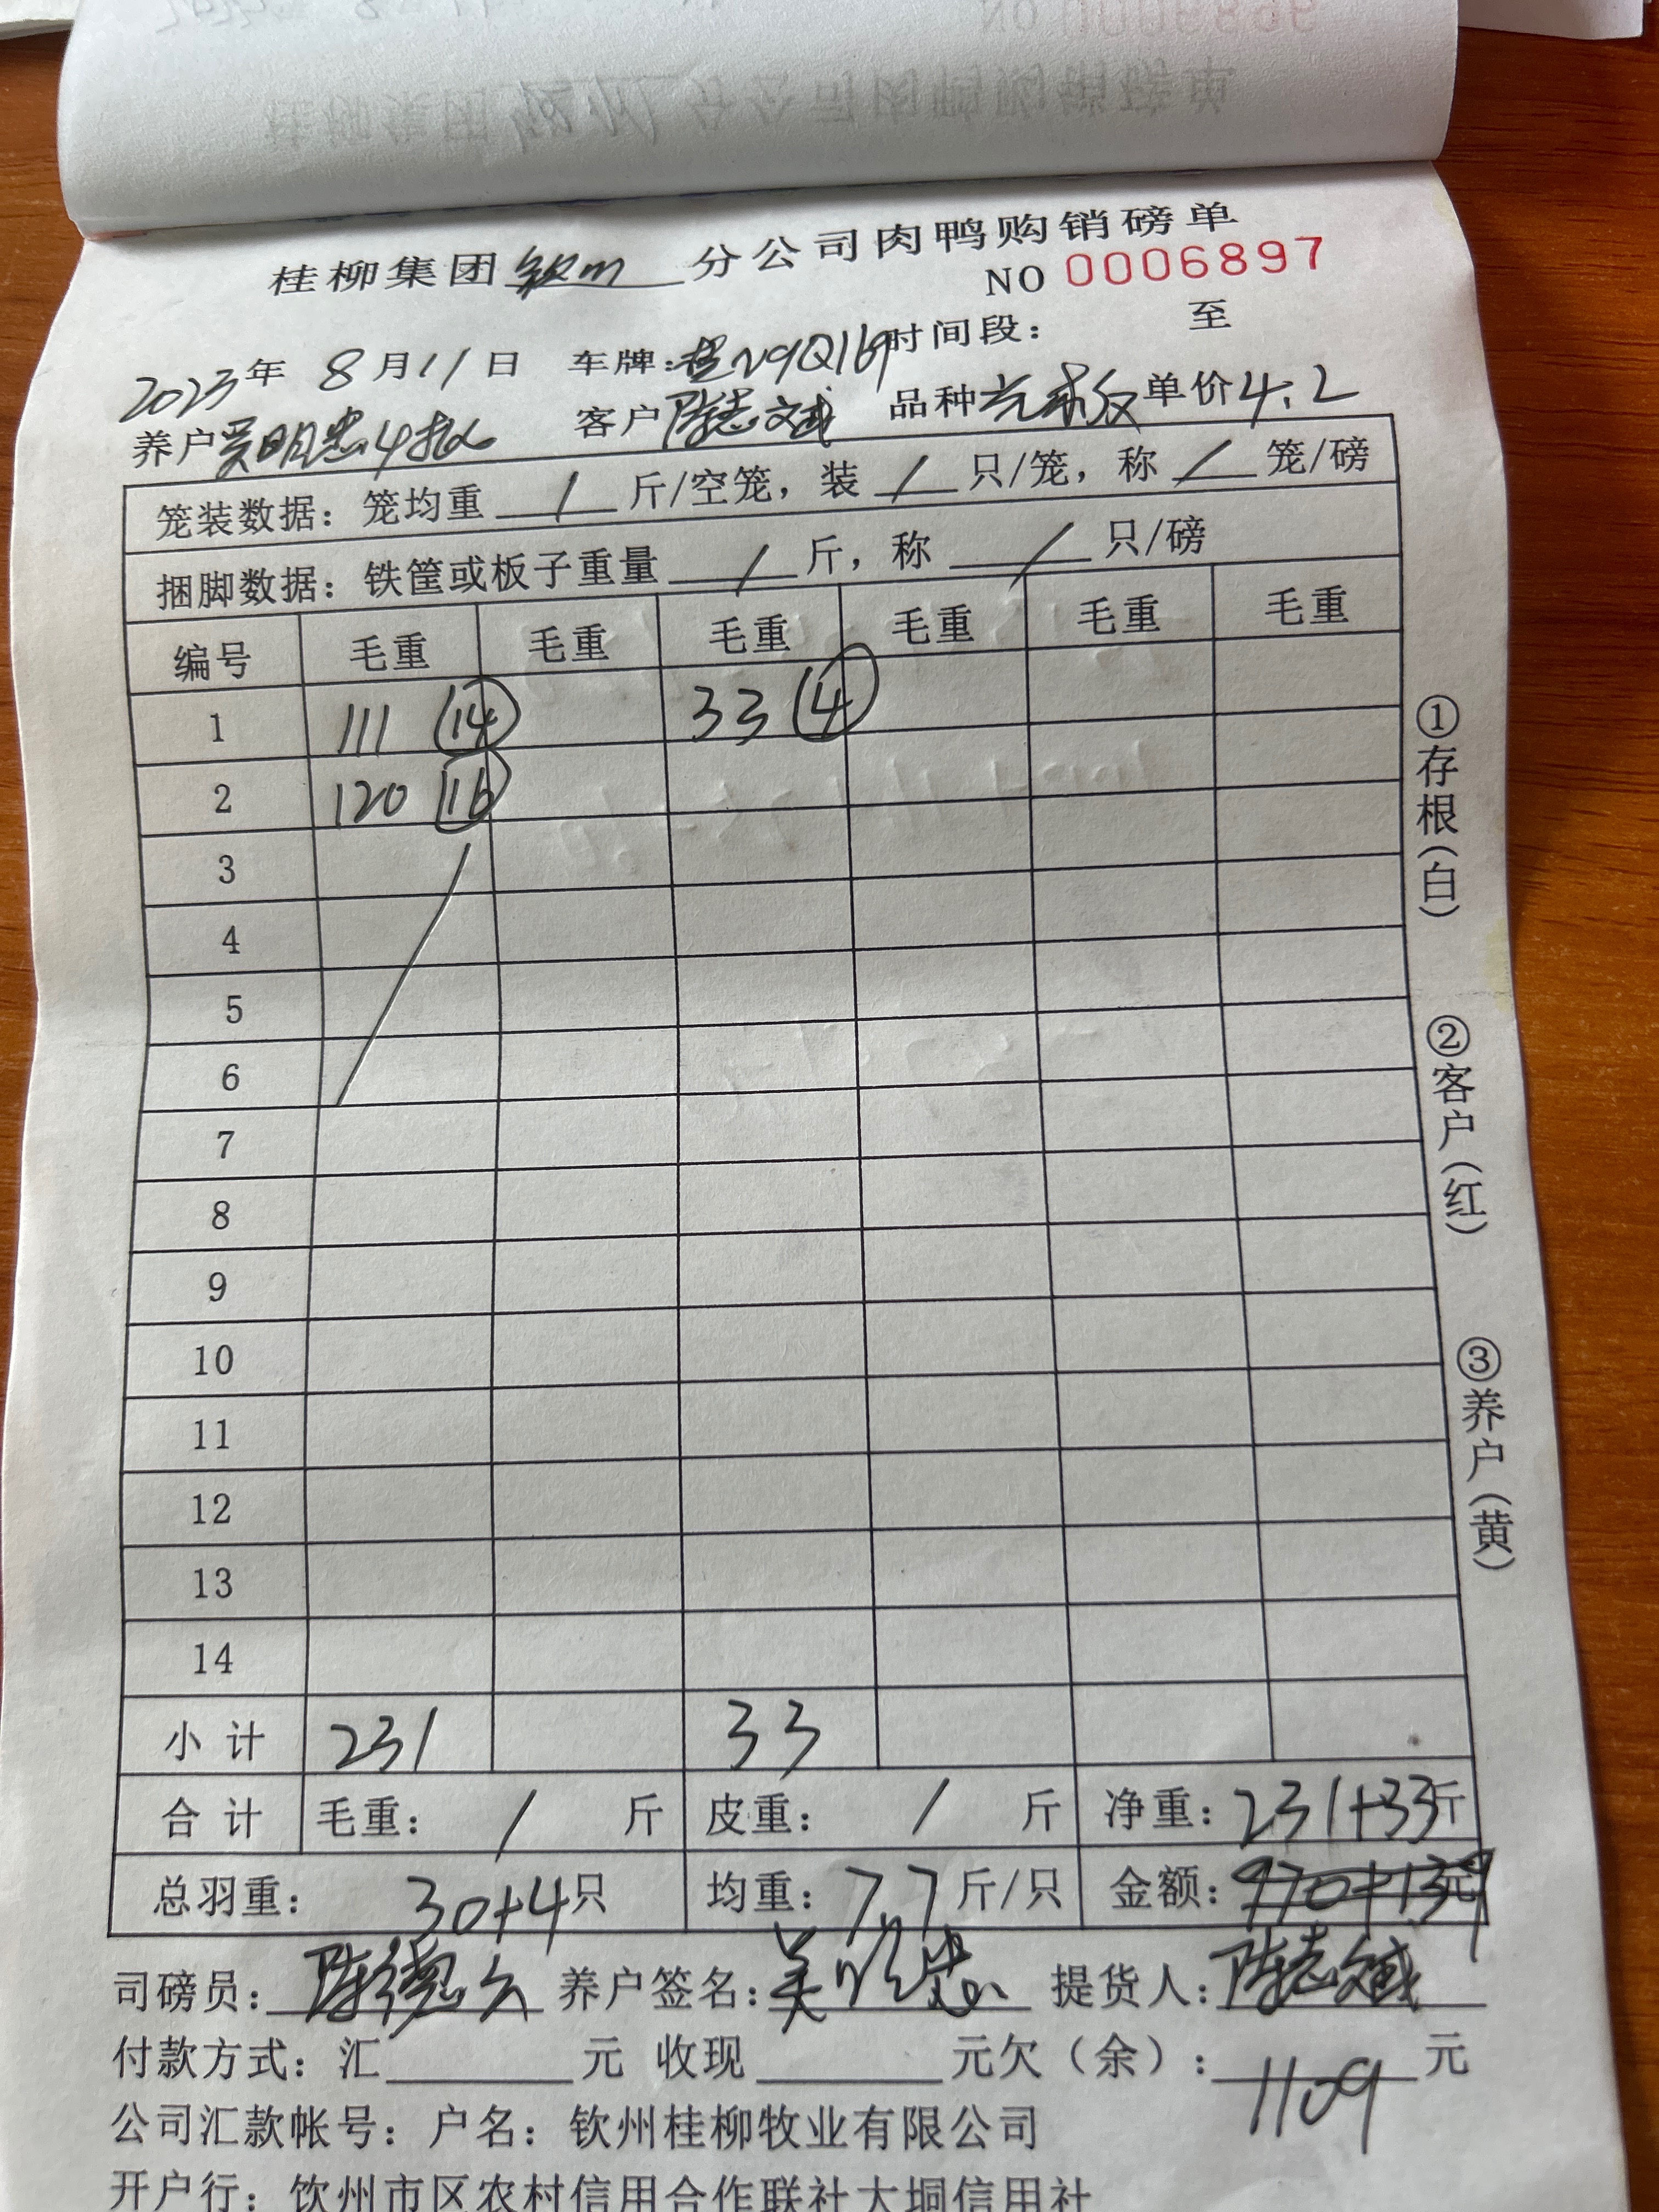 桂柳集团钦州分公司肉鸭购销磅单
NO 0006897
2023年 8月11日 车牌:桂N9Q169时间段: 至
养户吴明忠4批 客户陈志斌 品种 单价4.2
笼装数据: 笼均重 / 斤/空笼, 装 / 只/笼, 称 / 笼/磅
捆脚数据: 铁筐或板子重量 / 斤, 称 / 只/磅
编号 毛重 毛重 毛重 毛重 毛重 毛重
1 111 (14) 33 (4)
2 120 (16)
3
4
5
6
7
8
9
10
11
12
13
14
小计 231 33
合计 毛重: / 斤 皮重: / 斤 净重: 231+33斤
总羽重: 30+4只 均重: 7.7斤/只 金额: 970+139元
司磅员: 陈德 养户签名: 吴明忠 提货人: 陈志斌
付款方式: 汇 元 收现 元欠(余): 1109 元
公司汇款帐号: 户名: 钦州桂柳牧业有限公司
开户行: 钦州市区农村信用合作联社大垌信用社
①存根(白)
②客户(红)
③养户(黄)